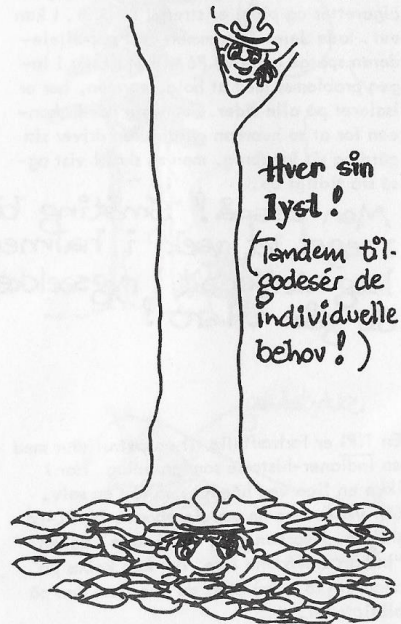 Hver sin
lyst!
(Tandem til-
godesér de
individuelle
behov!)